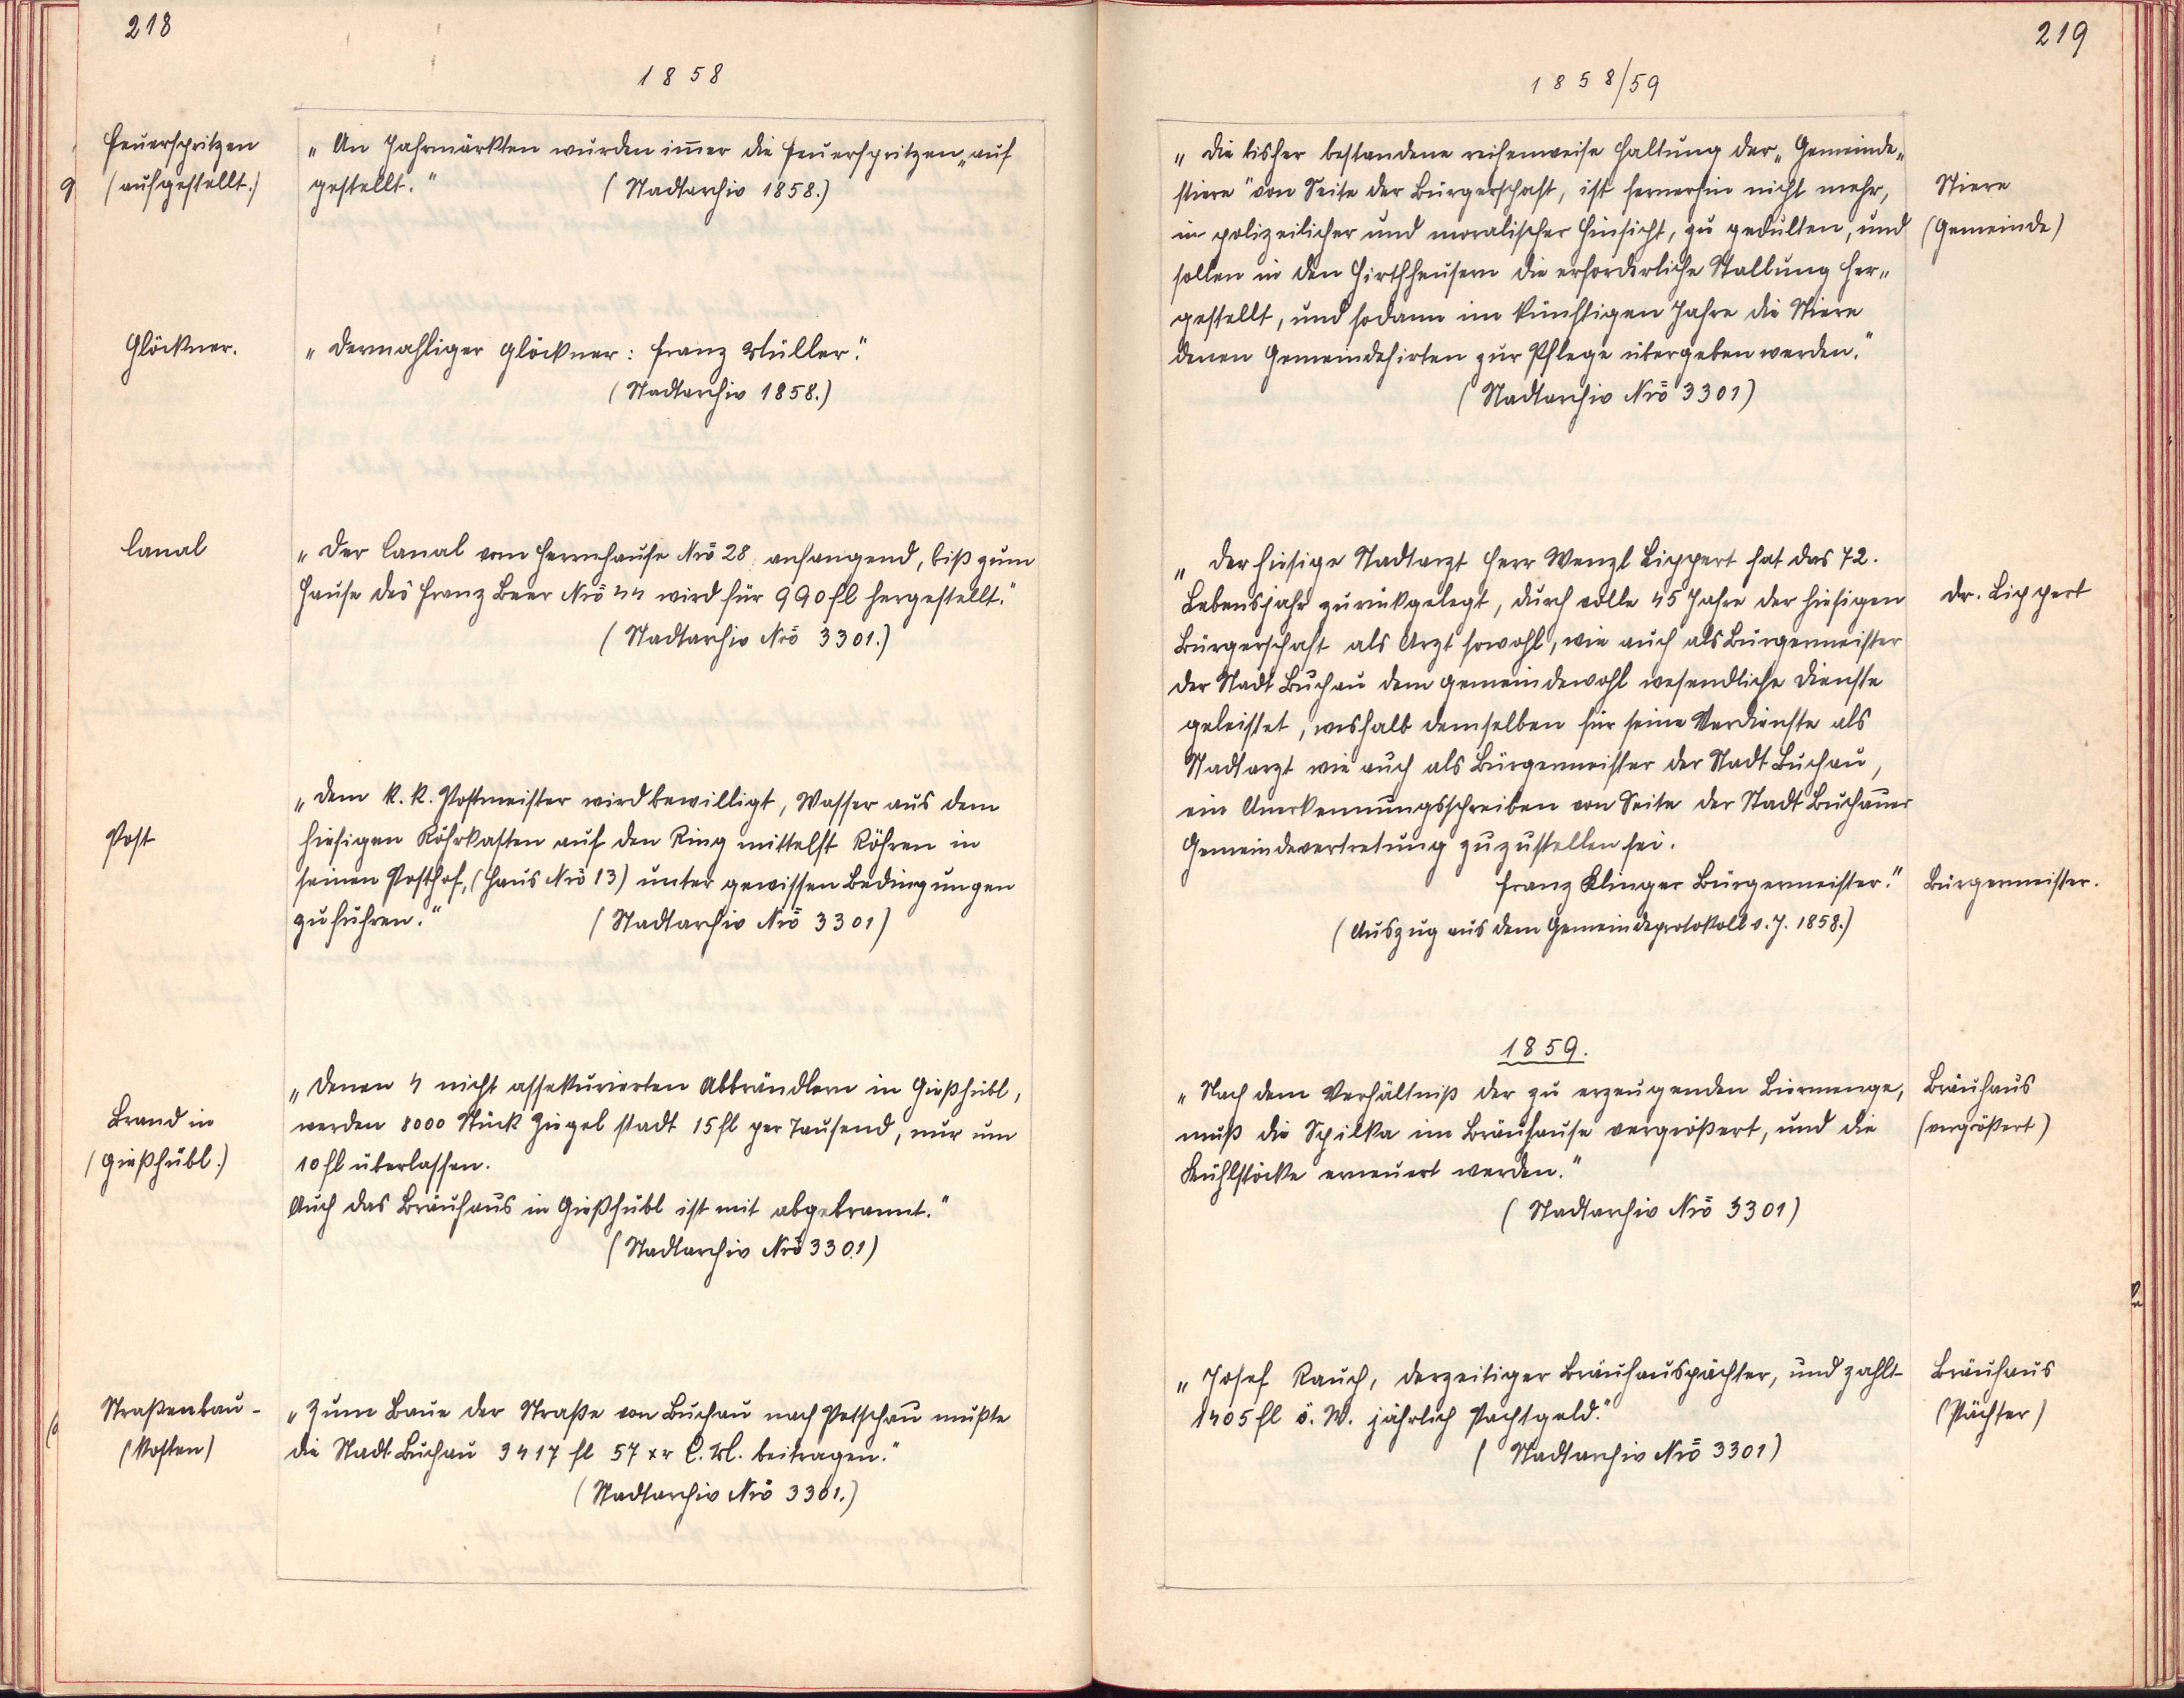 218
1858
Feuerspritzen
(aufgestellt.)
„An Jahrmärkten wurden im̄er die Feuerspritzen „auf
gestellt.“ (Stadtarchiv 1858.)
Glöckner.
„Dermahliger Glöckner: Franz Müller.“
(Stadtarchiv 1858.)
Canal
„Der Canal vom Herrnhause Nrō 28 anfangend, biß zum
Hause des Franz Beer Nrō 44 wird für 990 fl hergestellt.“
(Stadtarchiv Nrō 3301.)
Post
„Dem k. k. Postmeister wird bewilligt, Wasser aus dem
hiesigen Röhrkasten auf den Ring mittelst Röhren in
seinen Posthof, (Haus Nrō 13) unter gewissen Bedingungen
zu führen.“ (Stadtarchiv Nrō 3301)
Brand in
(Gießhübl.)
„Denen 4 nicht assekurierten Abbrändlern in Gießhübl,
werden 8000 Stück Ziegel stadt 15 fl per Tausend, nur um
10 fl überlassen.
Auch das Bräuhaus in Gießhübl ist mit abgebrannt.“
(Stadtarchiv Nrō 3301)
Straßenbau-
(Kosten)
„Zum Baue der Straße von Buchau nach Petschau mußte
die Stadt Buchau 3417 fl 57 xr C. M. beitragen.“
(Stadtarchiv Nrō 3301.)
219
1858/59
„Die bisher bestandene reihenweise Haltung der „Gemeinde„
stiere“ von Seite der Bürgerschaft, ist fernerhin nicht mehr,
in polizeilicher und moralischer Hinsicht, zu gedulten, und
sollen in den Hirthhäusern die erforderliche Stallung her„
gestellt, und sodann im künftigen Jahre die Stiere
denen Gemeindehirten zur Pflege übergeben werden.“
(Stadtarchiv Nrō 3301)
Stiere
(Gemeinde)
„Der hiesige Stadtarzt Herr Wenzl Lippert hat das 72.
Lebensjahr zurükgelegt, durch volle 45 Jahre der hiesigen
Bürgerschaft als Arzt sowohl, wie auch als Bürgermeister
der Stadt Buchau dem Gemeindewohl wesendliche Dienste
geleistet, weshalb demselben für seine Verdienste als
Stadtarzt wie auch als Bürgermeister der Stadt Buchau,
ein Anerkennungsschreiben von Seite der Stadt Buchauer
Gemeindevertretung zuzustellen sei.
Franz Klinger Bürgermeister.“
(Auszug aus dem Gemeindeprotokoll v. J. 1858.)
Dr. Lippert
Bürgermeister.
1859.
„Nach dem Verhältniß der zu erzeugenden Biermenge,
muß die Spilka im Bräuhause vergrößert, und die
Kühlstöcke erneuert werden.“
(Stadtarchiv Nrō 3301)
Bräuhaus
(vergrößert)
„Josef Rauch, derzeitiger Bräuhauspächter, und zahlt
1405 fl ö. W. jährlich Pachtgeld.“
(Stadtarchiv Nrō 3301)
Bräuhaus
(Pächter)